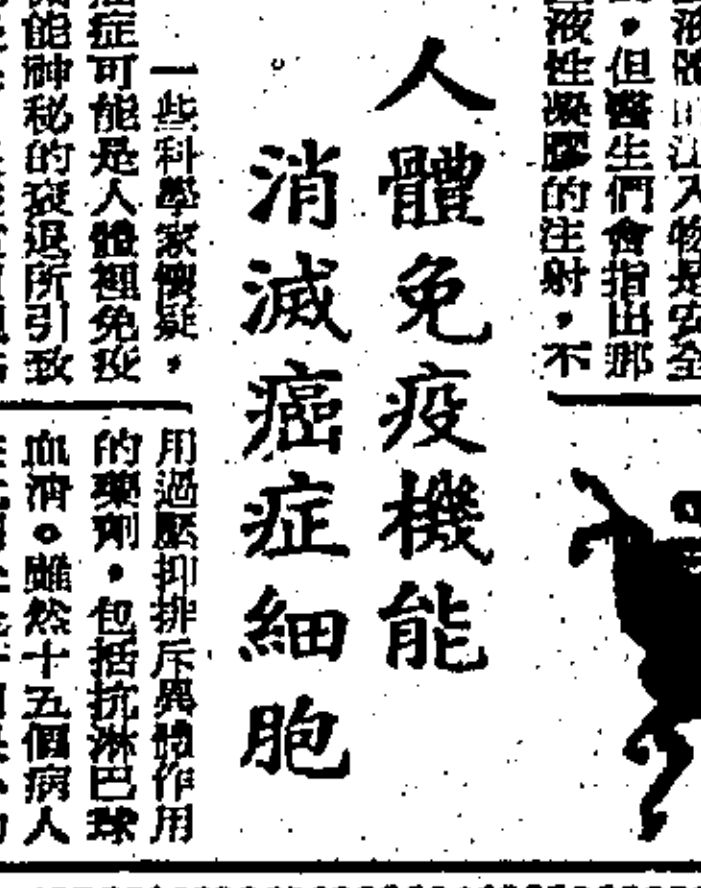 液體由注入物是安全
,但醫生們會指出那
液性凝膠的注射,不
人體免疫機能
消滅癌症細胞
一些科學家懷疑,
癌症可能是人體裡免疫
能神秘的衰退所引致
用過壓抑排斥異體作用
的藥劑。包括抗淋巴球
血清。雖然十五個病人